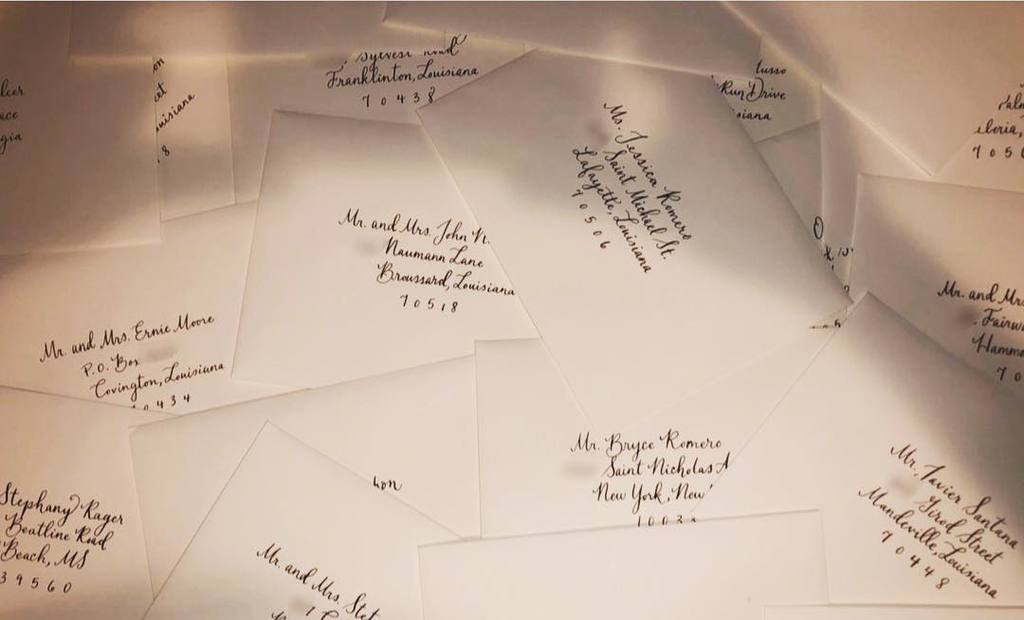 Franklinton, Louisiana
70438
Run Drive
Ms. Jessica Romero
Saint Michael St.
Lafayette, Louisiana
70506
Mr. and Mrs. John N.
Naumann Lane
Broussard, Louisiana
70518
Mr. and Mrs. Ernie Moore
P.O. Box
Covington, Louisiana
0434
Mr. and Mrs.
Mr. Bryce Romero
Saint Nicholas A
New York, New
1003
Mr. Javier Santana
Girod Street
Mandeville, Louisiana
70448
Stephany Rager
Beatline Road
Beach, MS
39560
Mr. and Mrs. Ste